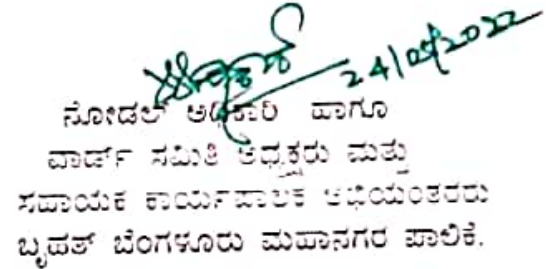 24/05/2022
ನೋಡಲ್ ಅಧಿಕಾರಿ ಹಾಗೂ
ವಾರ್ಡ್ ಸಮಿತಿ ಅಧ್ಯಕ್ಷರು ಮತ್ತು
ಸಹಾಯಕ ಕಾರ್ಯಪಾಲಕ ಅಭಿಯಂತರರು
ಬೃಹತ್ ಬೆಂಗಳೂರು ಮಹಾನಗರ ಪಾಲಿಕೆ.